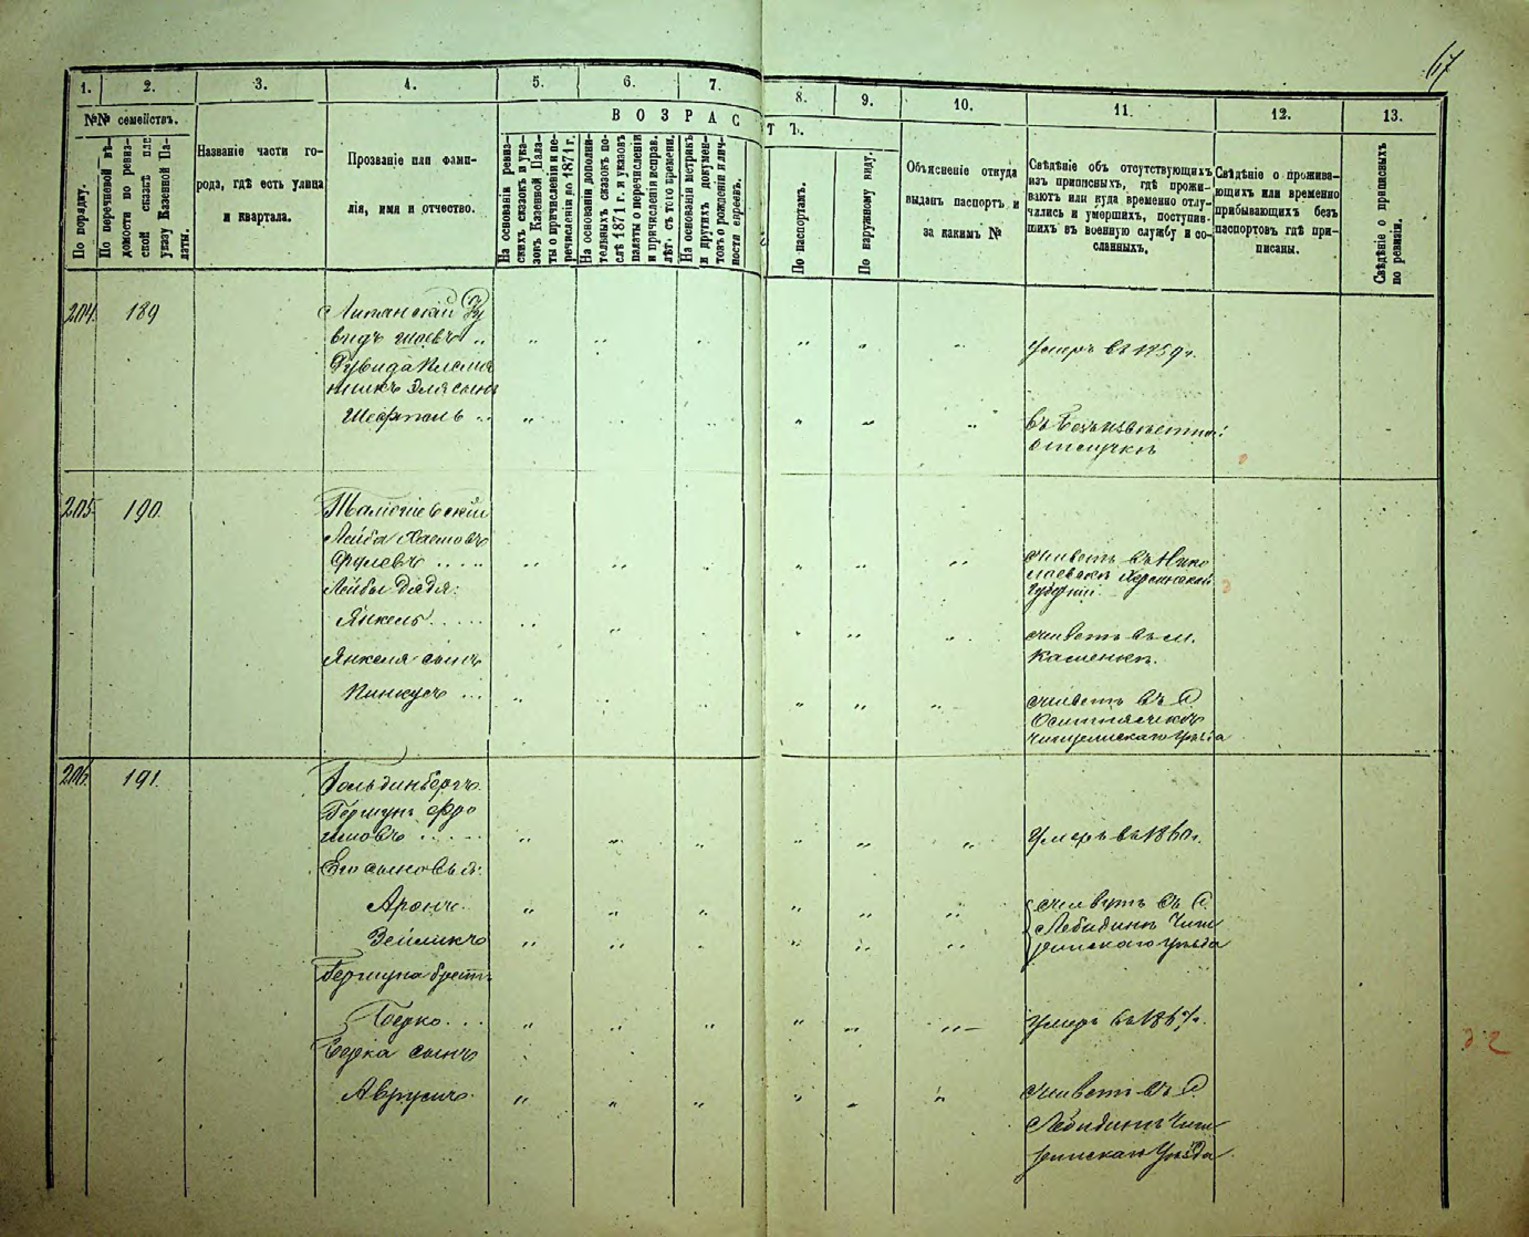 67
1. 2. 3. 4. 5. 6. 7. 8. 9. 10. 11. 12. 13.
№№ семействъ.
По порядку.
По перечневой вѣ-
домости по ревиз-
ской сказкѣ или
указу Казенной Па-
латы.
Названіе части го-
рода, гдѣ есть улица
и квартала.
Прозваніе или фами-
лія, имя и отчество.
ВОЗРАСТЪ.
На основаніи ревиз-
скихъ сказокъ и ука-
зовъ Казенной Пала-
ты о причисленіи и пе-
речисленіи до 1871 г.
На основаніи дополни-
тельныхъ сказокъ по-
слѣ 1871 г. и указовъ
палаты о перечисленіи
и причисленіи исправ.
лѣт. съ того времени.
На основаніи метрикъ
и другихъ докумен-
товъ о рожденіи и лич-
ности евреевъ.
По паспортамъ.
По наружному виду.
Объясненіе откуда
выданъ паспортъ и
за какимъ №
Свѣдѣніе объ отсутствующихъ
изъ приписныхъ, гдѣ прожи-
ваютъ или куда временно отлу-
чились и умершихъ, поступив-
шихъ въ военную службу и со-
сланныхъ.
Свѣдѣніе о прожива-
ющихъ или временно
прибывающихъ безъ
паспортовъ гдѣ при-
писаны.
Свѣдѣніе о приписныхъ
по ревизіи.
204. 189
видъ
Умеръ въ 1859 г.
Дувида племя
никъ сынъ
въ безъизвѣстной
отлучкѣ
205. 190.
Лейба
живетъ въ Нико
лаевѣ Херсонской
губерніи
Лейбы дядя:
Янкель
живетъ въ м.
Каменкѣ.
Янкеля сынъ
Пинкусъ
живетъ въ с.
Чигиринскаго уѣзда
206. 191.
Гольдинбергъ
Гершунъ Фро
имовъ
Умеръ въ 1860 г.
Его сыновья:
Аронъ
Зейликъ
живутъ въ с.
Лебединѣ Чиги
ринскаго уѣзда
Гершуна братъ
Берко
Умеръ въ 1867 г.
Берка сынъ
Аврумъ
живетъ въ с.
Лебединѣ Чиги
ринскаго уѣзда